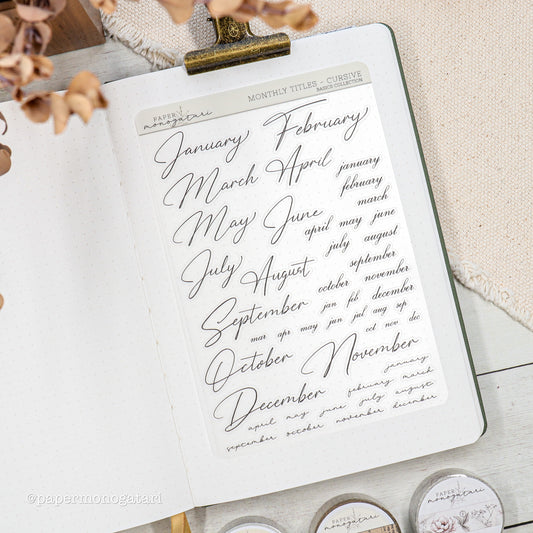 MONTHLY TITLES - CURSIVE
BASICS COLLECTION
PAPER
monogatari
January February
March April
january
february
May June
march
april may june
july august
July August
september
october november
September
jan feb december
mar apr may jun jul aug sep
oct nov dec
October November
january
february march
December
april may june july august
september october november december
©papermonogatari
PAPER
monogatari
PAPER
monogatari